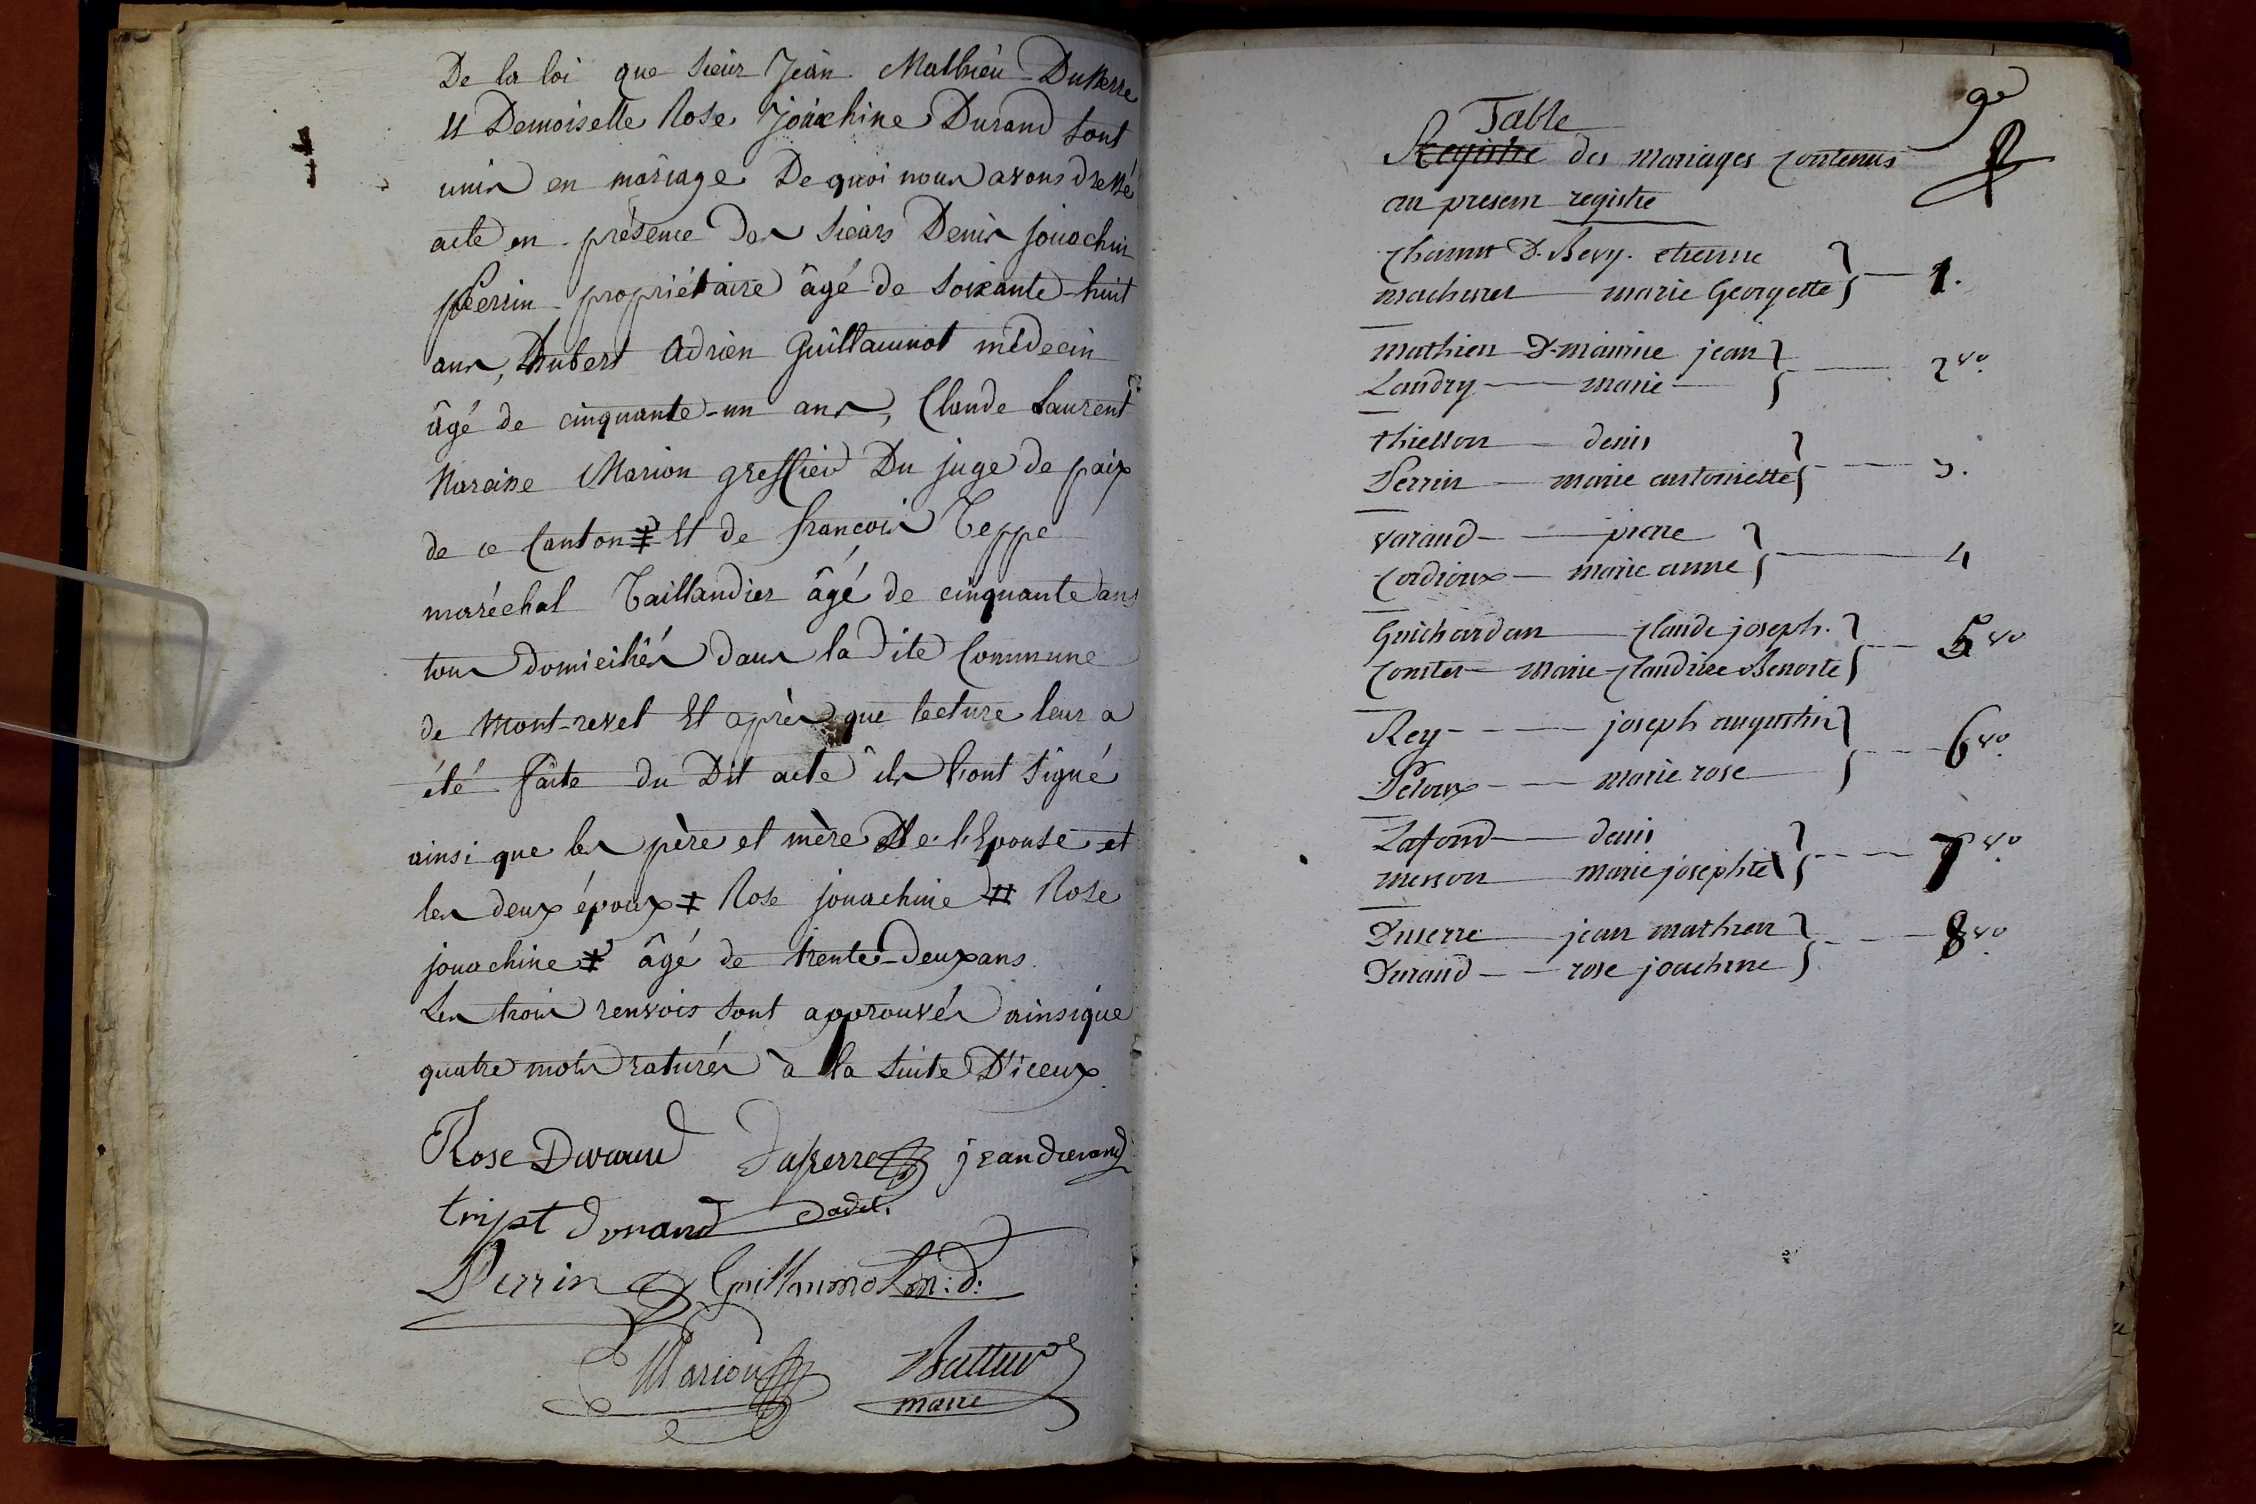 De la loi que sieur Jean Mathieu Duserre
Et Demoiselle Rose Jouachine Durand sont
unis en mariage De quoi nous avons dressé
acte en présence des sieurs Denis jouachin
perrin propriétaire âgé de soixante-huit
ans, hubert Adrien Guillaumot médecin
âgé de cinquante-un ans, Claude Laurent
Narcisse Marion greffier Du juge de paix
de ce Canton ‡ Et de francois Teppe
maréchal Taillandier âgé de cinquante ans
tous domiciliés dans la dite Commune
de Mont-revel Et après que lecture leur a
été faite du Dit acte ils l'ont signé
ainsi que les père et mère De l'Epouse et
les deux époux ‡ Rose jouachine ‡‡ Rose
jouachine ‡ âgé de trente-deux ans.
Les trois renvois sont approuvés ainsi que
quatre mots raturés à la suite D'iceux.
Rose Durand Duserre jean durand
durand
Perrin Guillaumot m: d:
Marion
maire
9e
Table
Registre des mariages contenus
au present registre
etienne
marie Georgette 1.
mathieu D. jean
Landry marie 2 vo.
thiesson denis
Perrin marie antoniette 3.
varaud pierre
Cordioux marie anne 4
Guichardan Claude joseph.
marie Claudine Benoite 5 vo
Rey joseph augustin
Peloux marie rose 6 vo.
Lafond denis
messon marie josephte 7 vo.
Duserre jean mathieu
Durand rose joachine 8 vo.